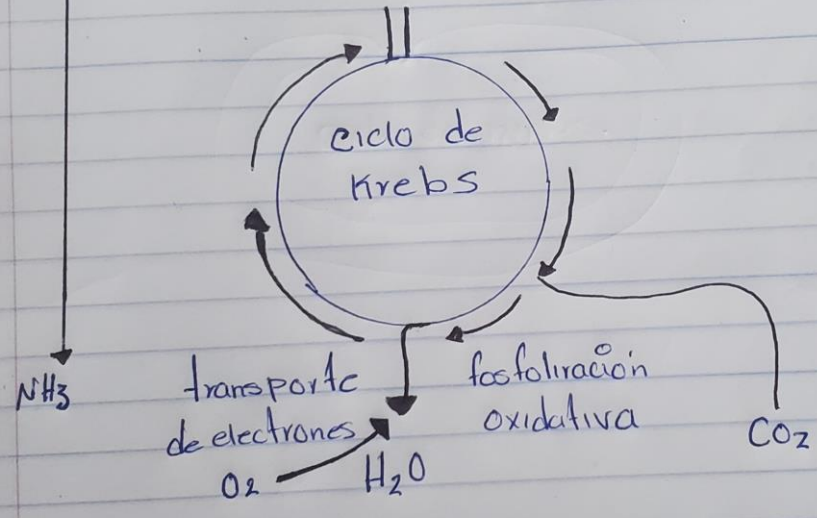 ciclo de
Krebs
NH3
transporte
de electrones
O2
H2O
fosfoliración
oxidativa
CO2